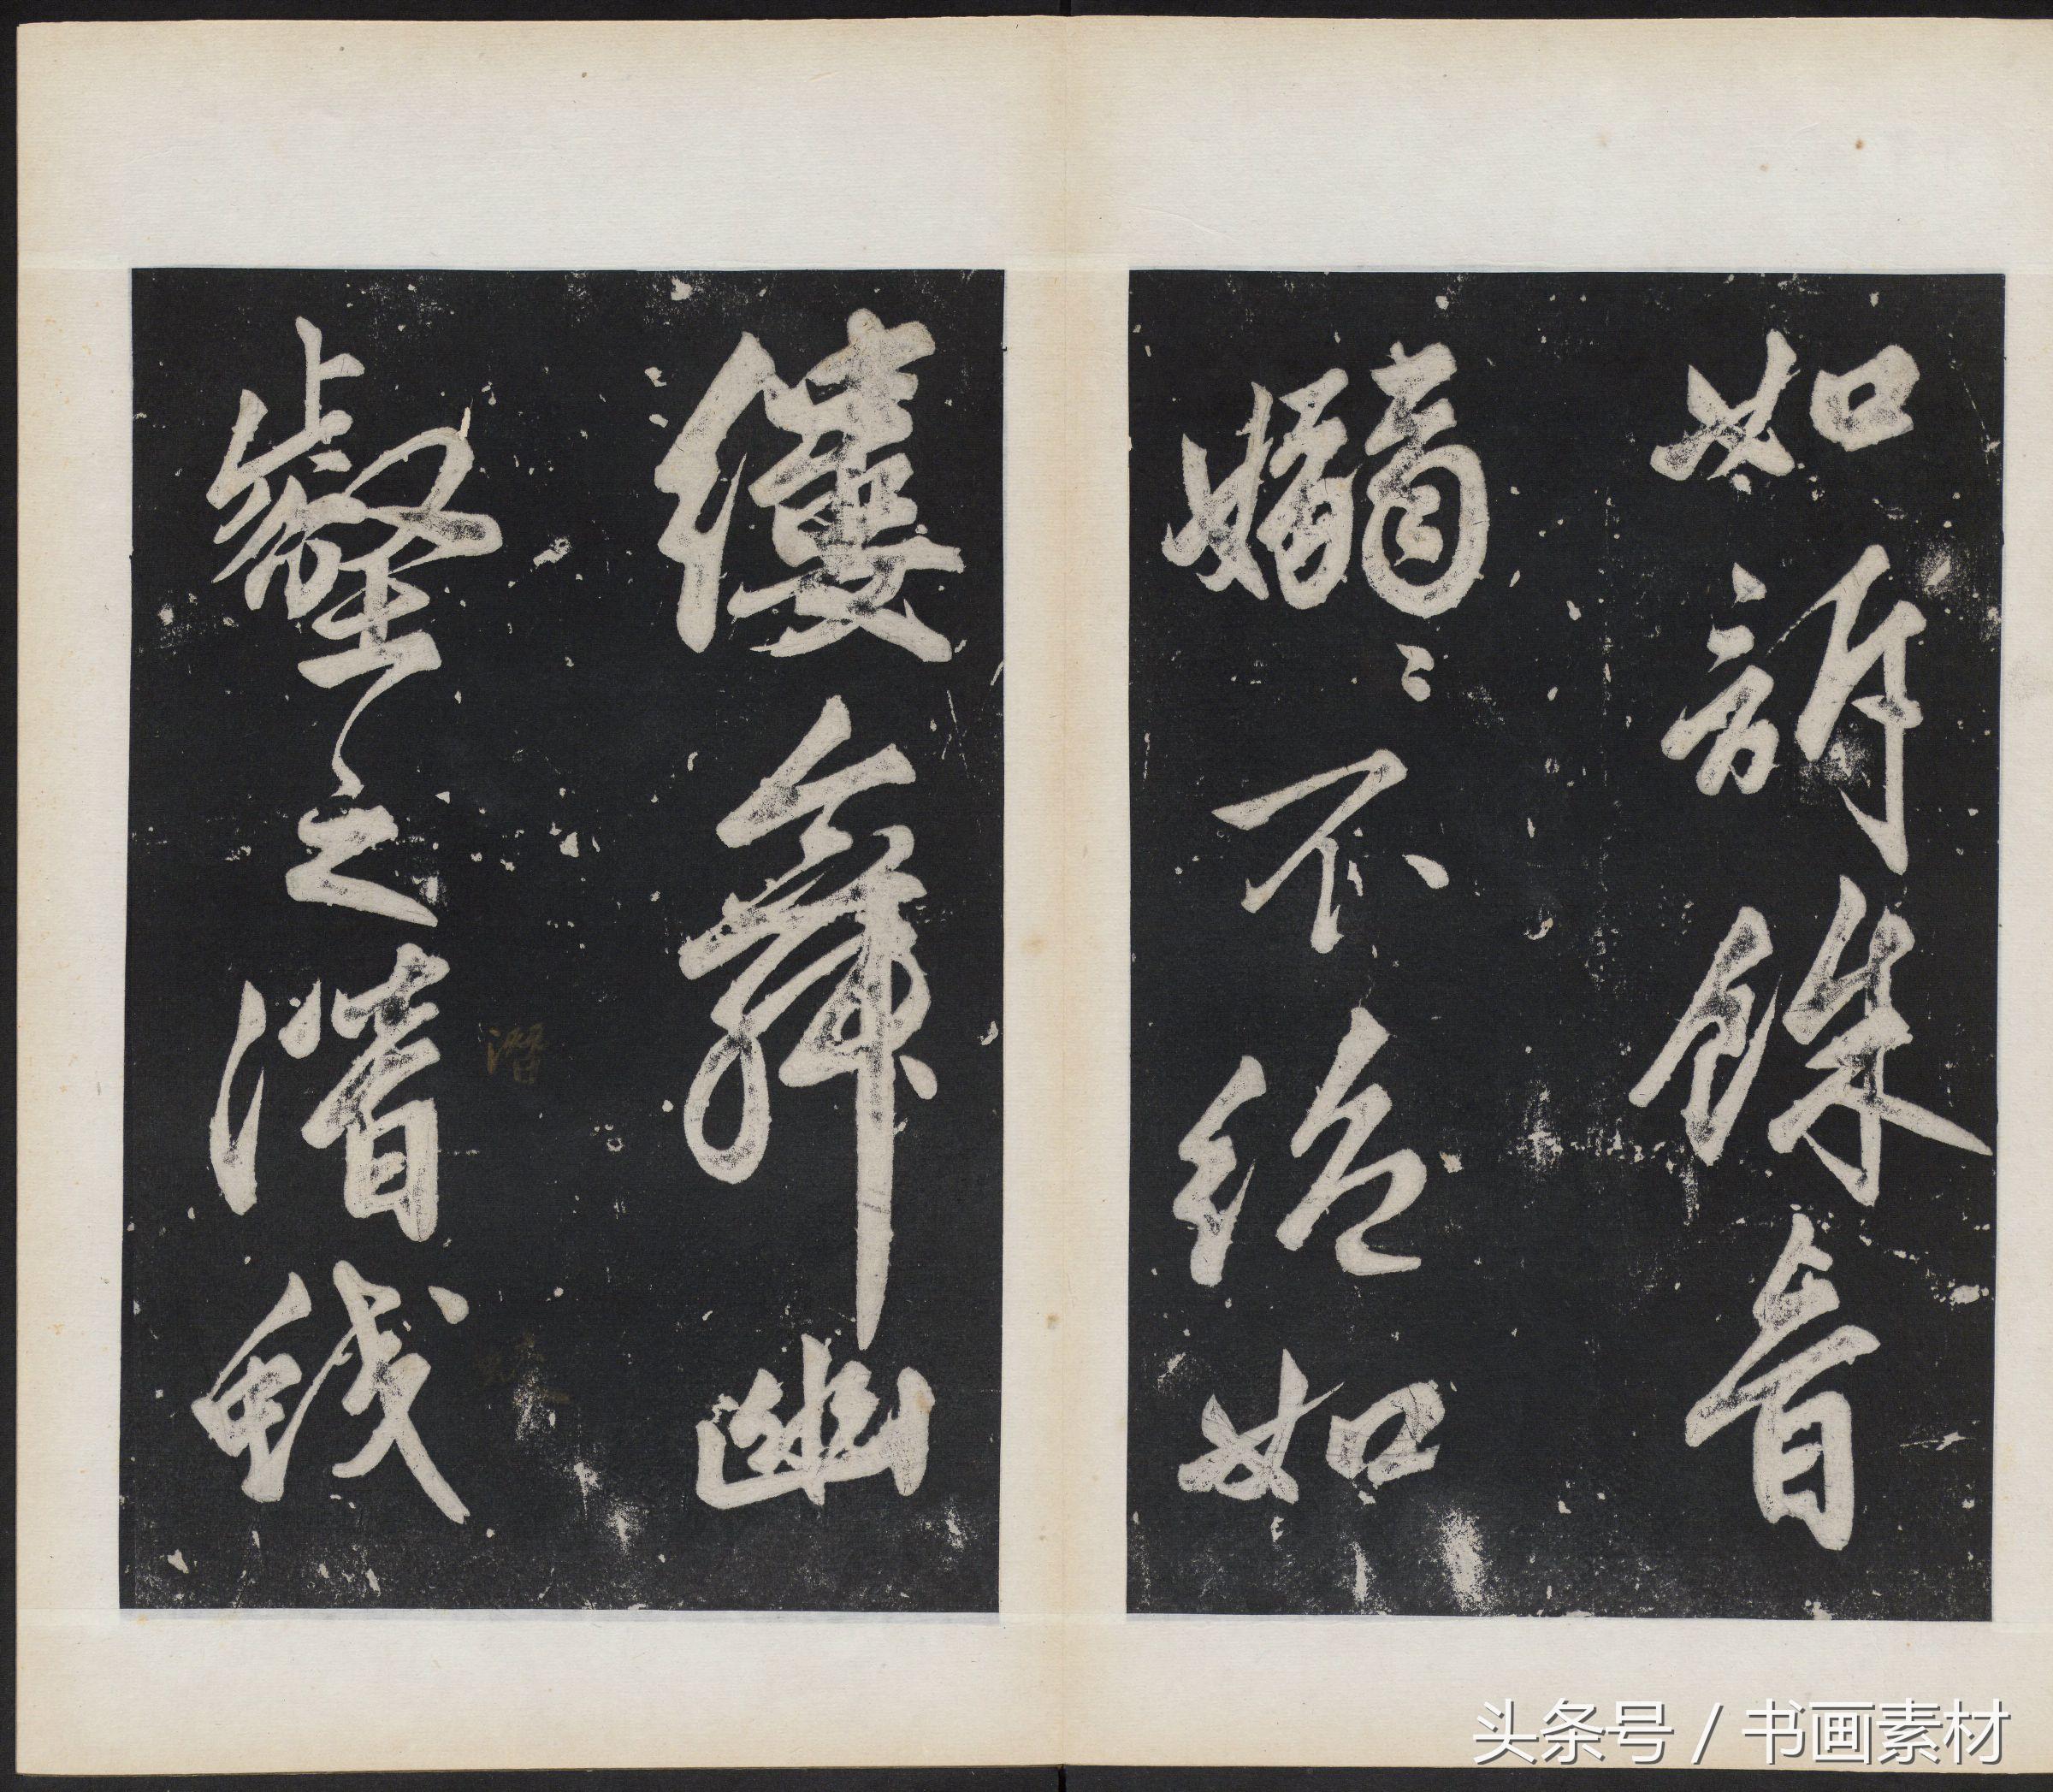 如訴餘音
嫋〻不絕如
縷舞幽
壑之潛蛟
潛
蛟
头条号 / 书画素材